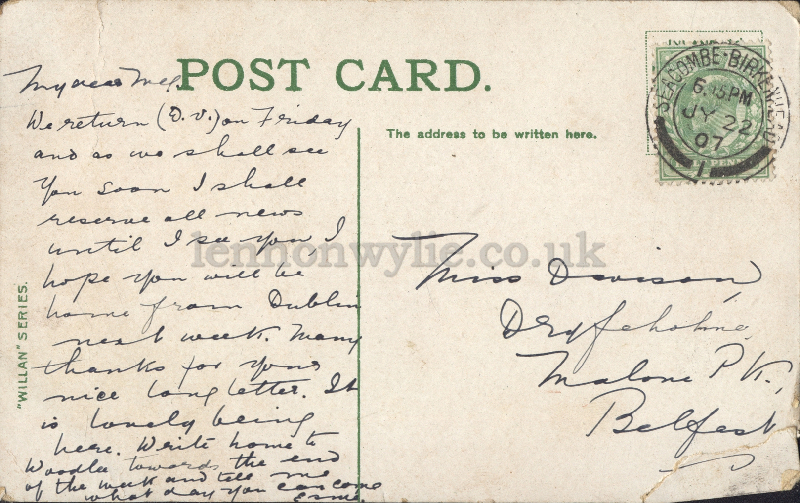 POST CARD.
My dear Meg.
We return (D.V.) on Friday
and as we shall see
you soon I shall
reserve all news
until I see you, I
hope you will be
home from Dublin
next week. Many
thanks for your
nice long letter. It
is lovely being
here. Write home to
Woodlee towards the end
of the week and tell me
what day you can come
Esme.
"WILLAN" SERIES.
The address to be written here.
SEACOMBE-BIRKENHEAD
6.45PM
JY 22
07
1
Miss Davison,
Malone Pk.,
Belfast
lennonwylie.co.uk